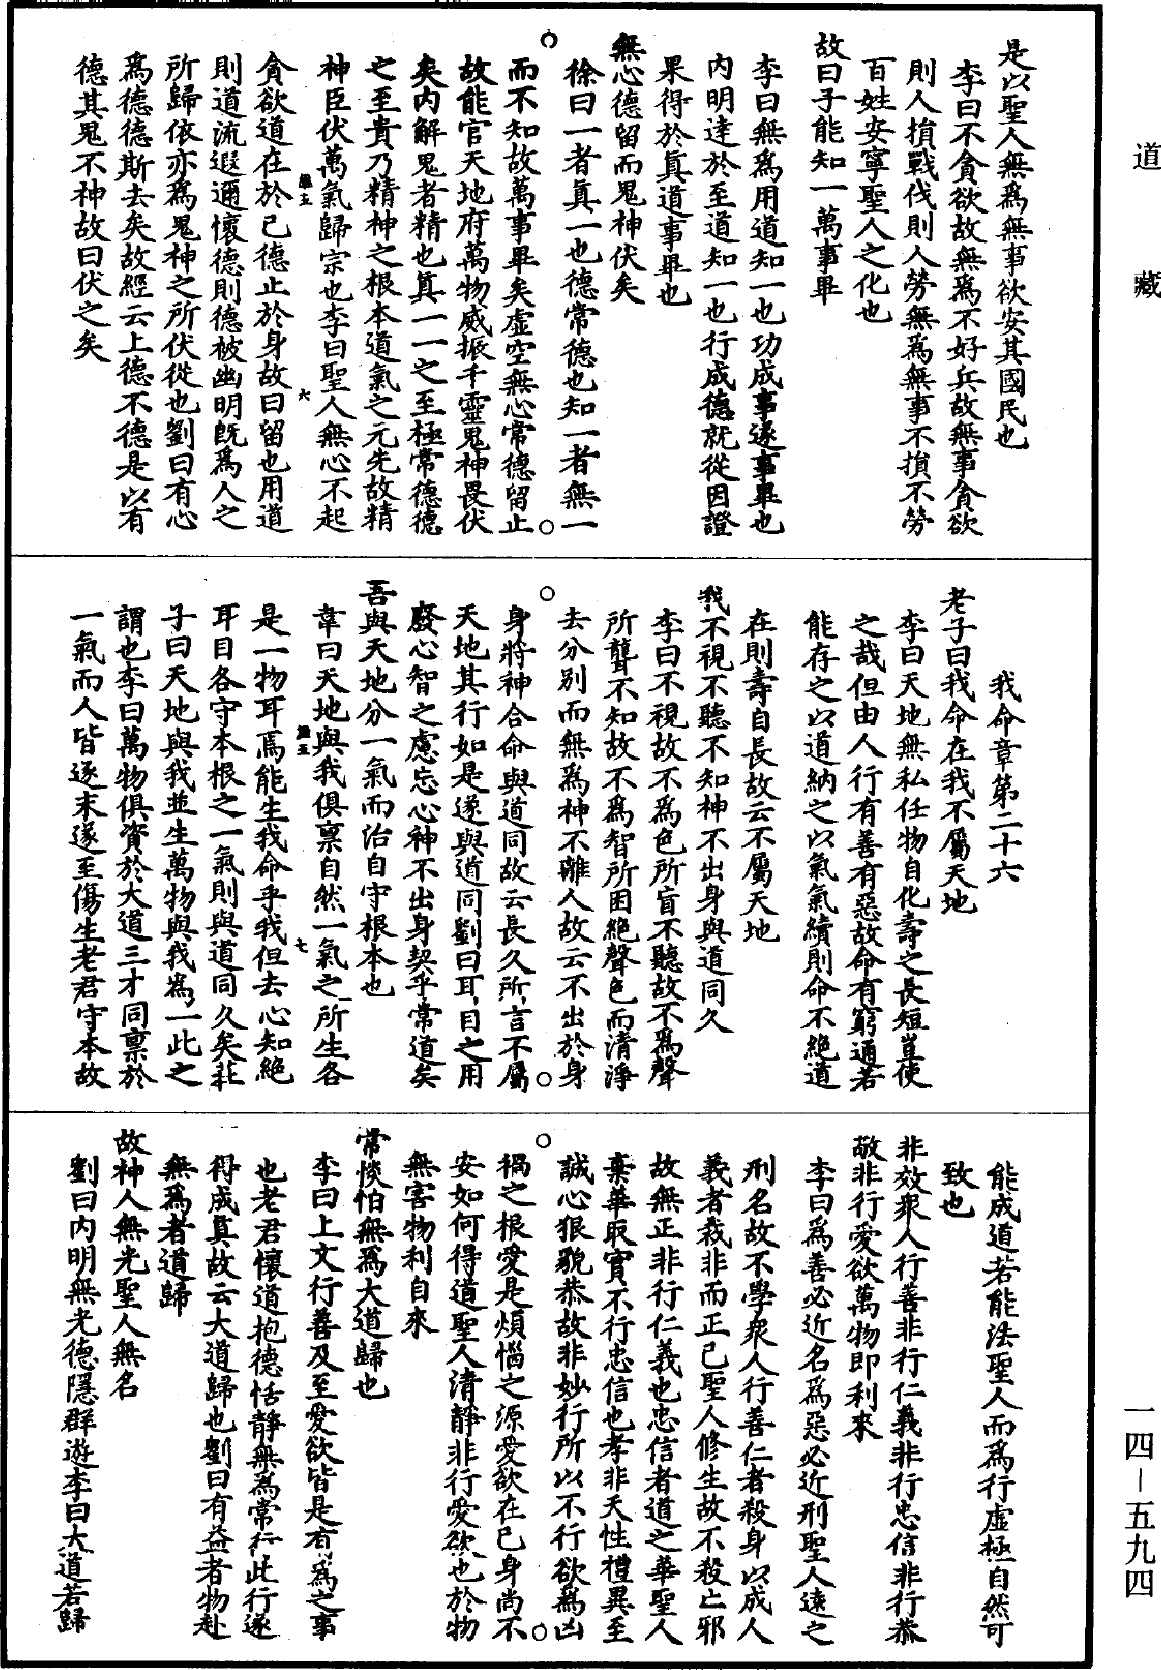 道藏
是以聖人無爲無事欲安其國民也
李曰不貪欲故無爲不好兵故無事貪欲
則人損戰伐則人勞無爲無事不損不勞
百姓安寧聖人之化也
故曰子能知一萬事畢
李曰無爲用道知一也功成事遂事畢也
内明達於至道知一也行成德就從因證
果得於真道事畢也
無心德留而鬼神伏矣
徐曰一者真一也德常德也知一者無一
而不知故萬事畢矣虛空無心常德留止
故能官天地府萬物威振千靈鬼神畏伏
矣内解鬼者精也真一一之至極常德德
之至貴乃精神之根本道氣之元先故精
神臣伏萬氣歸宗也李曰聖人無心不起
貪欲道在於己德止於身故曰留也用道
則道流遐邇懷德則德被幽明旣爲人之
所歸依亦爲鬼神之所伏從也劉曰有心
爲德德斯去矣故經云上德不德是以有
德其鬼不神故曰伏之矣
我命章第二十六
老子曰我命在我不屬天地
李曰天地無私任物自化壽之長短豈使
之哉但由人行有善有惡故命有窮通若
能存之以道納之以氣氣續則命不絕道
在則壽自長故云不屬天地
我不視不聽不知神不出身與道同久
李曰不視故不爲色所盲不聽故不爲聲
所聾不知故不爲智所困絕聲色而清淨
去分別而無爲神不離人故云不出於身
身將神合命與道同故云長久所言不屬
天地其行如是遂與道同劉曰耳目之用
廢心智之慮忘心神不出身契乎常道矣
吾與天地分一氣而治自守根本也
韋曰天地與我俱禀自然一氣之所生各
是一物耳焉能生我命乎我但去心知絕
耳目各守本根之一氣則與道同久矣莊
子曰天地與我並生萬物與我爲一此之
謂也李曰萬物俱資於大道三才同禀於
一氣而人皆逐末遂至傷生老君守本故
能成道若能法聖人而爲行虛極自然可
致也
非效衆人行善非行仁義非行忠信非行恭
敬非行愛欲萬物即利來
李曰爲善必近名爲惡必近刑聖人遠之
刑名故不學衆人行善仁者殺身以成人
義者裁非而正己聖人修生故不殺亡邪
故無正非行仁義也忠信者道之華聖人
棄華取實不行忠信也孝非天性禮異至
誠心狠貌恭故非妙行所以不行欲爲凶
禍之根愛是煩惱之源愛欲在己身尚不
安如何得道聖人清靜非行愛欲也於物
無害物利自來
常惔怕無爲大道歸也
李曰上文行善及至愛欲皆是有爲之事
也老君懷道抱德恬靜無爲常行此行遂
得成真故云大道歸也劉曰有益者物赴
無爲者道歸
故神人無光聖人無名
劉曰内明無光德隱群遊李曰大道若歸
一四－五九四